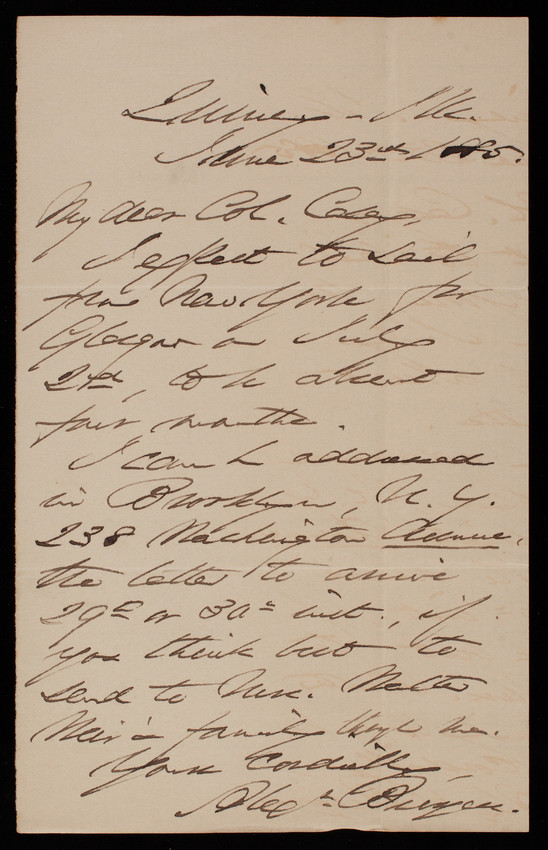 Quincy - Ills.
June 23rd 1885.
My dear Col. Casey,
I expect to sail
from New York for
Glasgow on July
2nd, to be absent
four months.
I can be addressed
in Brooklyn, N. Y.
238 Washington Avenue,
the letter to arrive
29th or 30th inst., if
you think best to
send to Mrs.
family through me.
Yours Cordially,